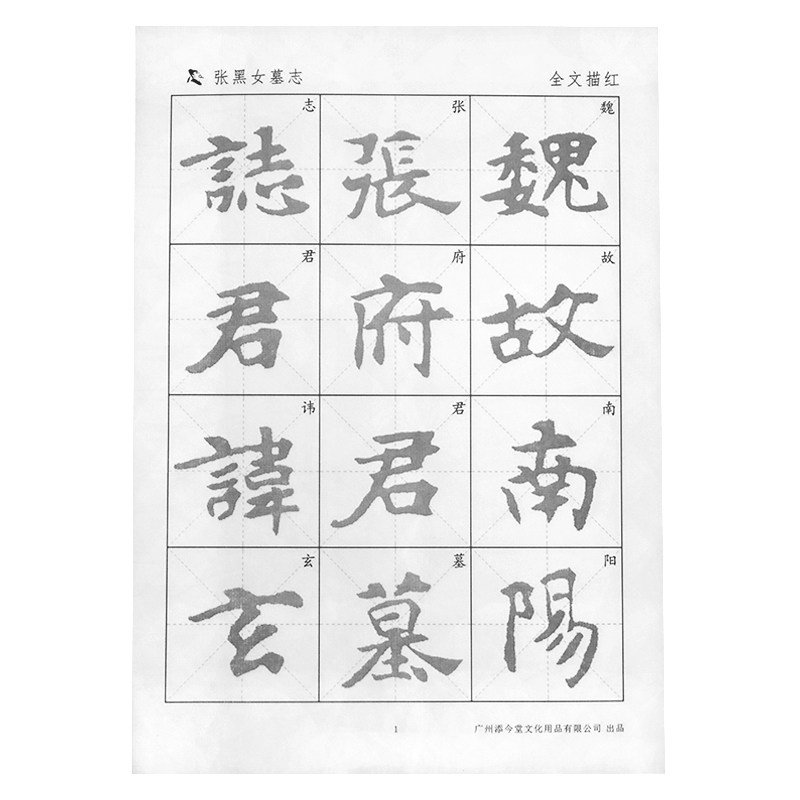 张黑女墓志
全文描红
魏
魏
故
故
南
南
阳
陽
张
張
府
府
君
君
墓
墓
志
誌
君
君
讳
諱
玄
玄
1
广州添今堂文化用品有限公司 出品